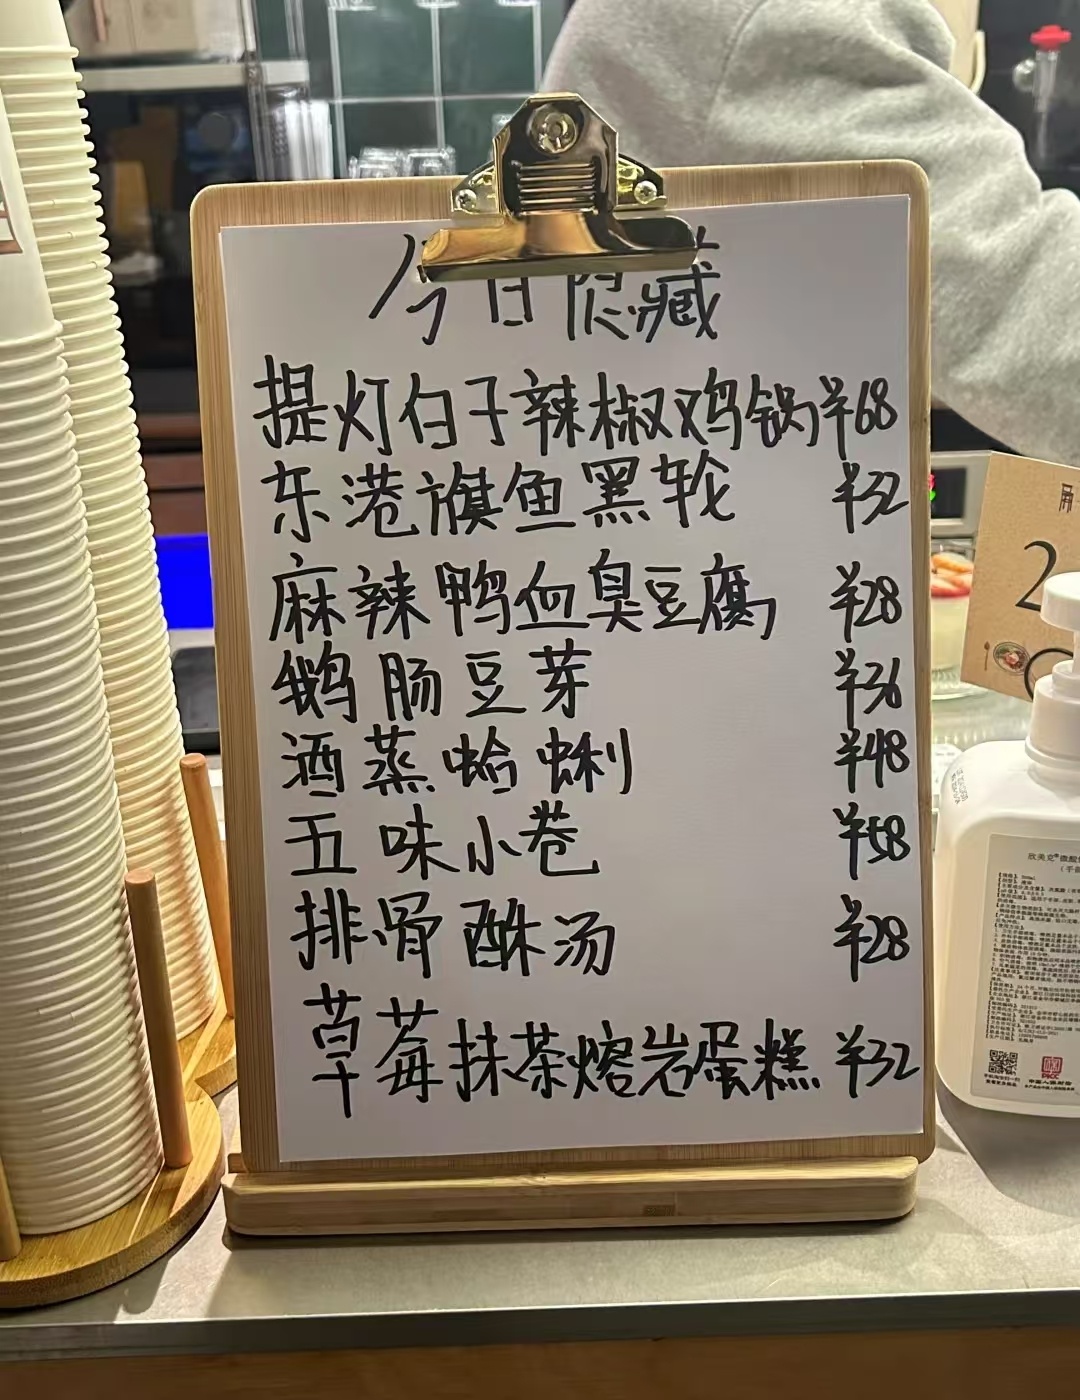 今日隐藏
提灯白子辣椒鸡锅¥68
东港旗鱼黑轮 ¥32
麻辣鸭血臭豆腐 ¥28
鹅肠豆芽 ¥36
酒蒸蛤蜊 ¥48
五味小卷 ¥58
排骨酥汤 ¥28
草莓抹茶熔岩蛋糕 ¥32
2